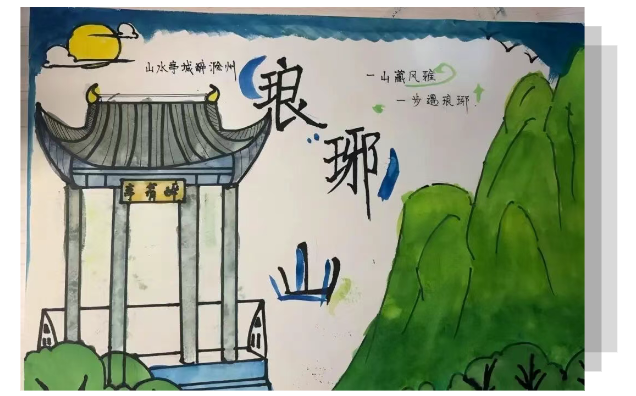 山水亭城醉滁州
琅
琊
山
一山藏风雅
一步遇琅琊
醉翁亭